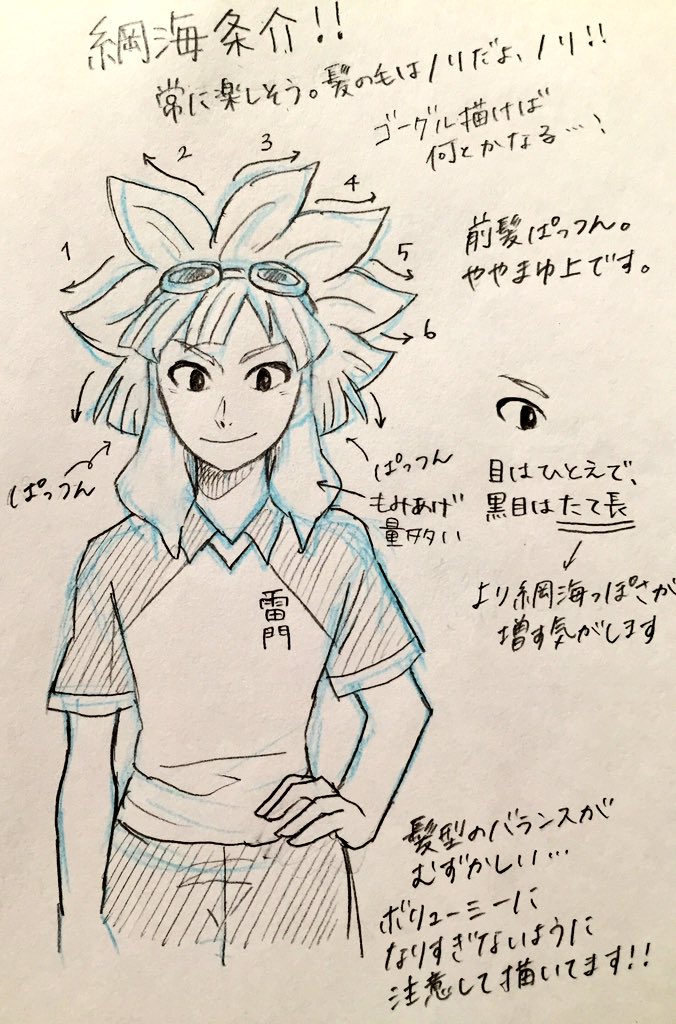 綱海条介!!
常に楽しそう。髪の毛はノリだよ、ノリ!!
ゴーグル描けば
何とかなる…!
1
2
3
4
5
6
前髪ぱっつん。
ややまゆ上です。
ぱっつん
ぱっつん
もみあげ
量多い
目はひとえで、
黒目はたて長
より綱海っぽさが
増す気がします
雷門
髪型のバランスが
むずかしい…
ボリューミーに
なりすぎないように
注意して描いてます!!